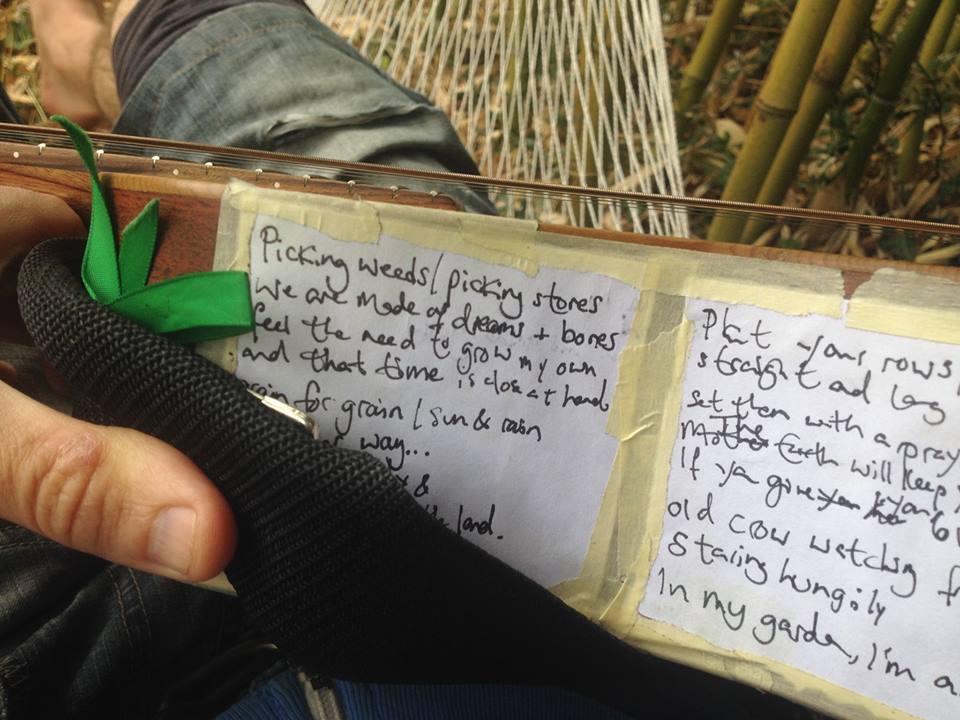 Picking weeds / picking stones
We are made of dreams + bones
feel the need to grow my own
and that time is close at hand
for grain / sun & rain
way...
&
land.
Plant your rows
straight and long
set them with a
The
Mother Earth will keep
If ya give
old crow watching
Staring hungrily
In my garden, I'm